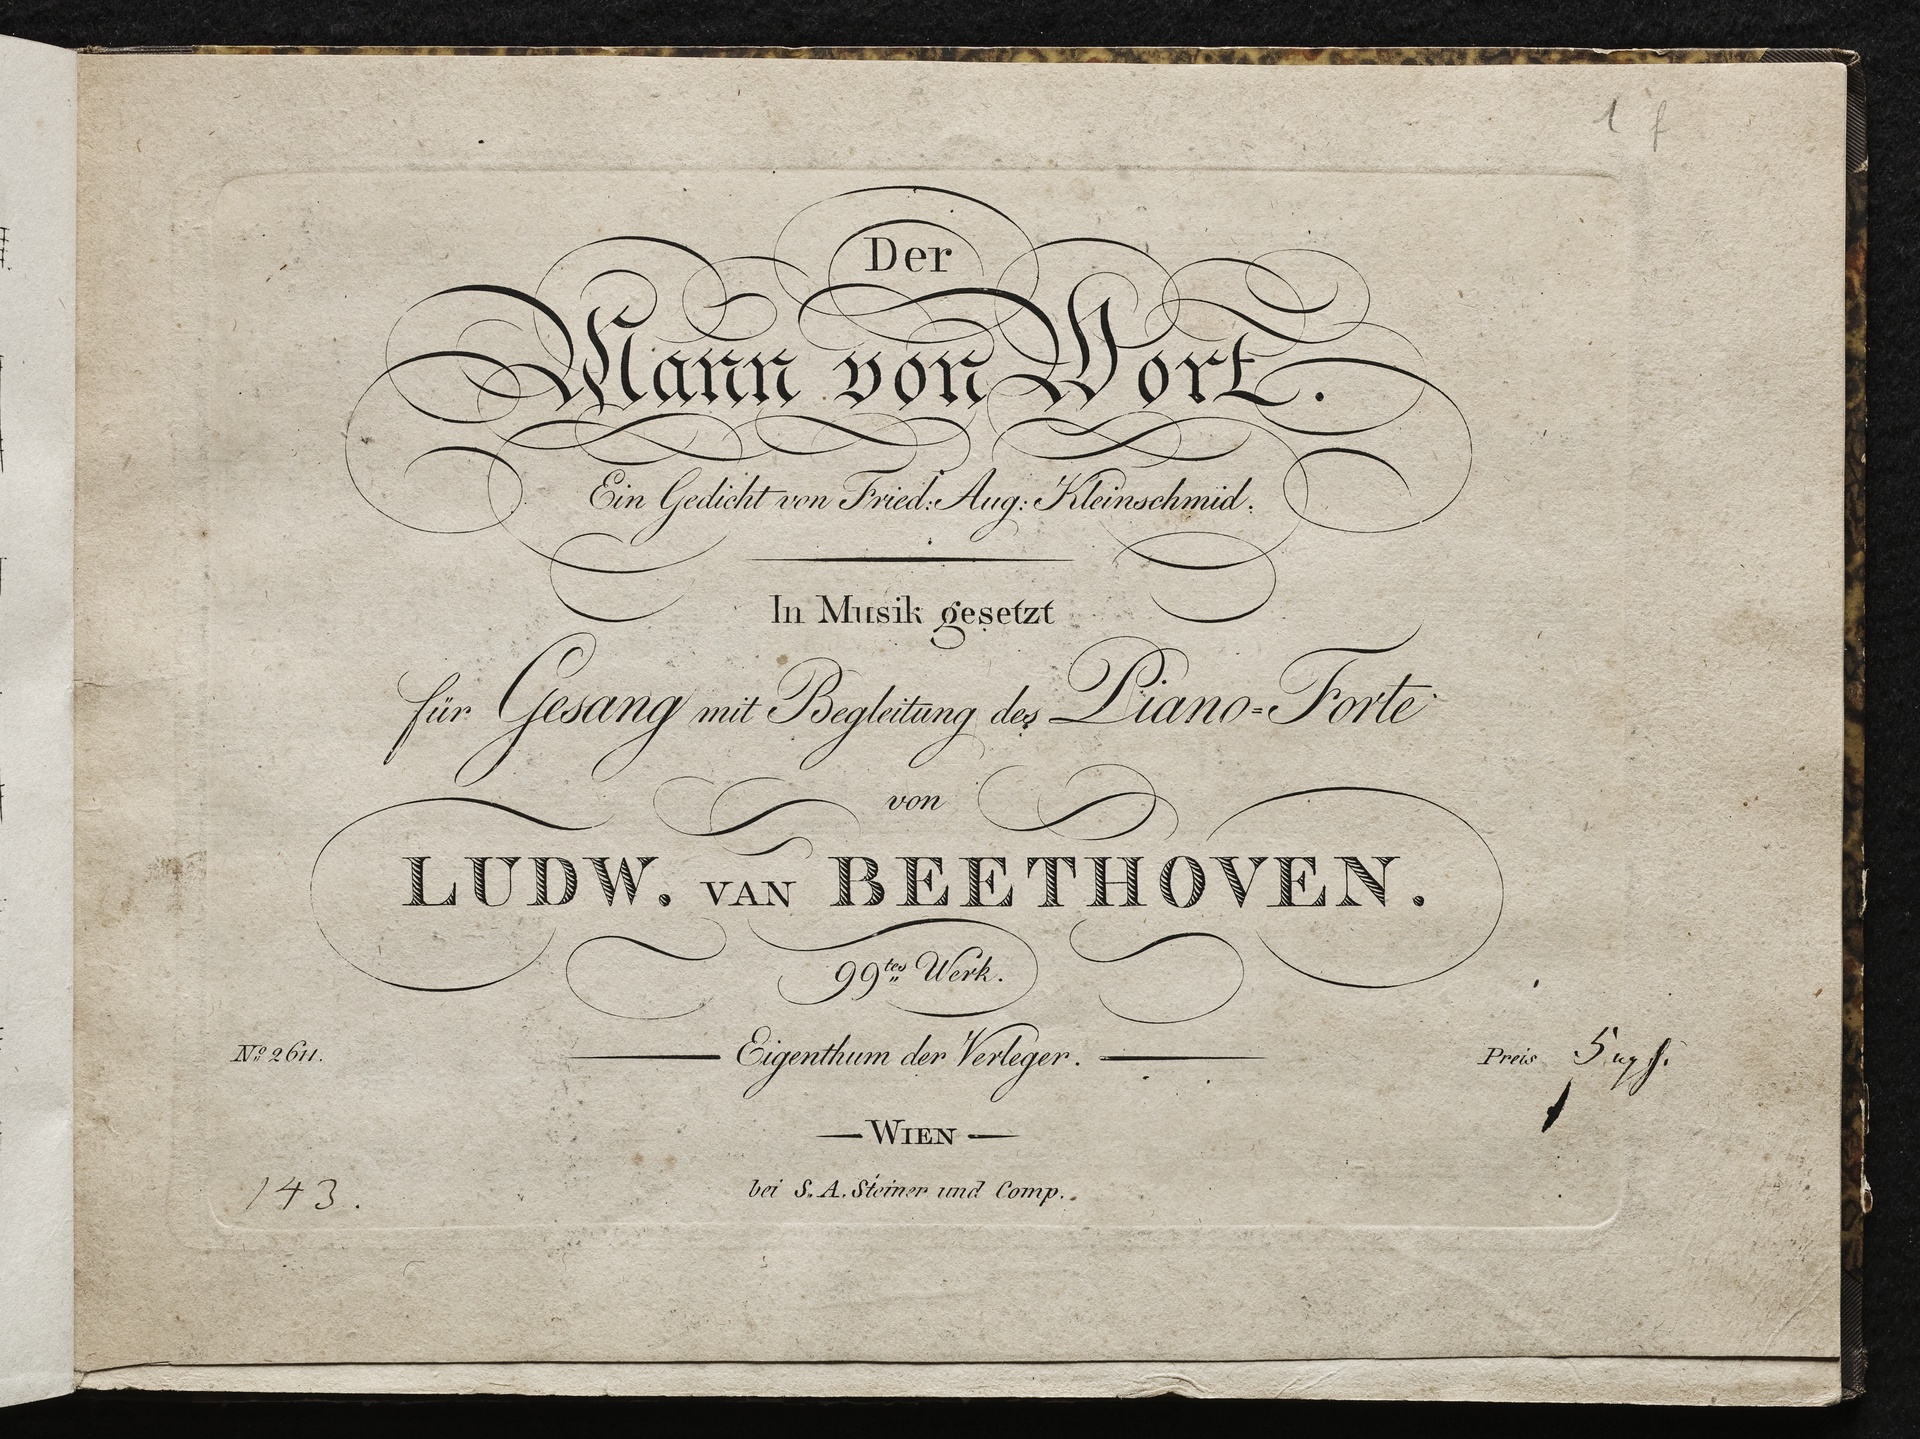 1 f
Der
Mann von Wort.
Ein Gedicht von Fried: Aug: Kleinschmid.
In Musik gesetzt
für Gesang mit Begleitung des Piano=Forte
von
LUDW. VAN BEETHOVEN.
99tes Werk.
No 2611.
Eigenthum der Verleger.
Preis 5
WIEN
bei S. A. Steiner und Comp.
143.